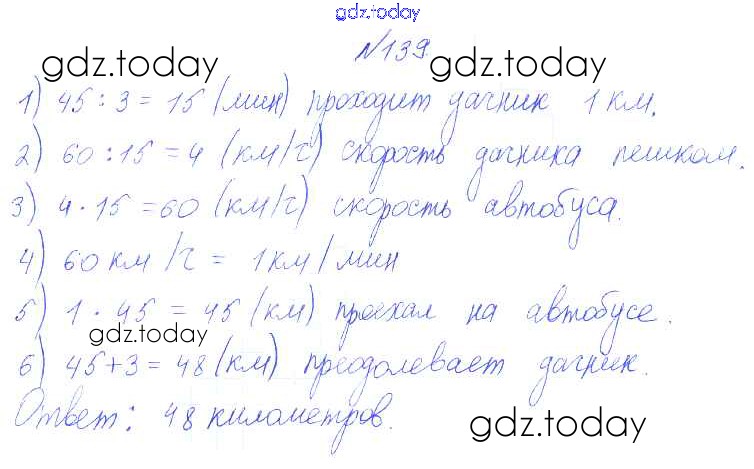 gdz.today
№139
gdz.today gdz.today
1) 45 : 3 = 15 (мин) проходит дачник 1 км.
2) 60 : 15 = 4 (км/ч) скорость дачника пешком.
3) 4 · 15 = 60 (км/ч) скорость автобуса.
4) 60 км/ч = 1 км/мин
5) 1 · 45 = 45 (км) проехал на автобусе.
gdz.today
6) 45 + 3 = 48 (км) преодолевает дачник.
Ответ: 48 километров.
gdz.today